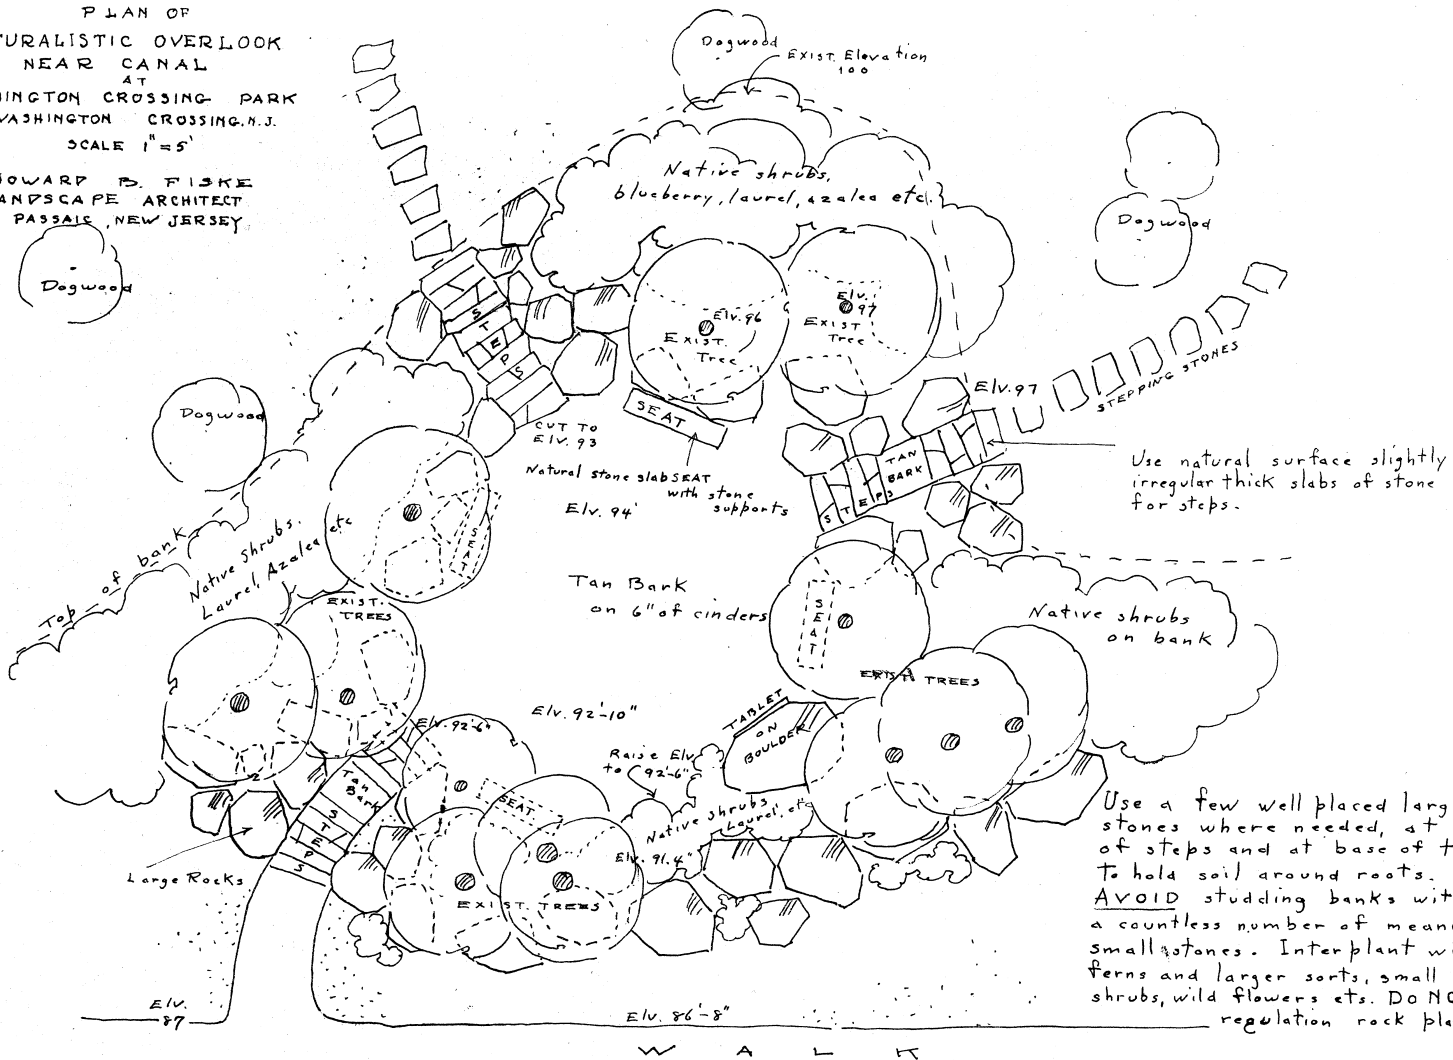 PLAN OF
TURALISTIC OVERLOOK
NEAR CANAL
AT
HINGTON CROSSING PARK
WASHINGTON CROSSING, N.J.
SCALE 1"=5'
HOWARD B. FISKE
LANDSCAPE ARCHITECT
PASSAIC, NEW JERSEY
Dogwood
Dogwood
EXIST. Elevation
100
Native shrubs,
blueberry, laurel, azalea etc.
Dogwood
Dogwood
STEPS
Elv. 96
EXIST.
Tree
Elv.
97
EXIST.
Tree
SEAT
CUT TO
Elv. 93
Natural stone slab SEAT
with stone
supports
Elv. 97
STEPPING STONES
TAN
BARK
STEPS
Use natural surface slightly
irregular thick slabs of stone
for steps.
Dogwood
Top of bank
Native shrubs.
Laurel, Azalea etc
SEAT
Elv. 94'
Tan Bark
on 6" of cinders
SEAT
Native shrubs
on bank
EXIST.
TREES
EXIST. TREES
Elv. 92'-6"
Elv. 92'-10"
TABLET
ON
BOULDER
Raise Elv.
to 92'-6"
Native shrubs
Laurel, etc
Elv. 91.4"
SEAT
Tan
Bark
STEPS
Large Rocks
EXIST. TREES
Use a few well placed larg
stones where needed, at
of steps and at base of t
to hold soil around roots.
AVOID studding banks wit
a countless number of meani
small stones. Interplant wi
ferns and larger sorts, small
shrubs, wild flowers ets. DO NO
regulation rock pla
Elv.
87
Elv. 86'-8"
WALK